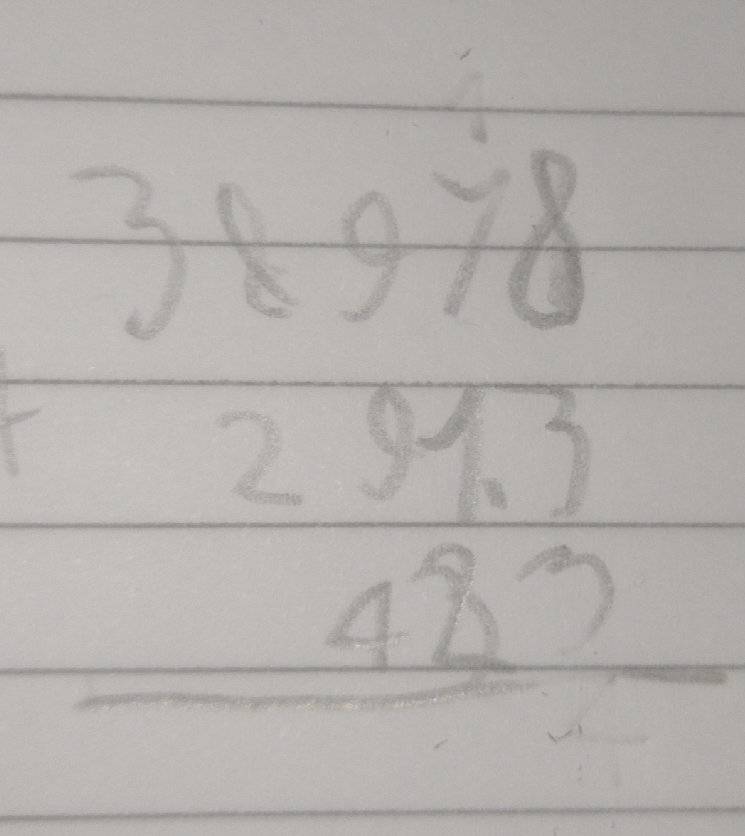 1
38978
+ 291.3
483